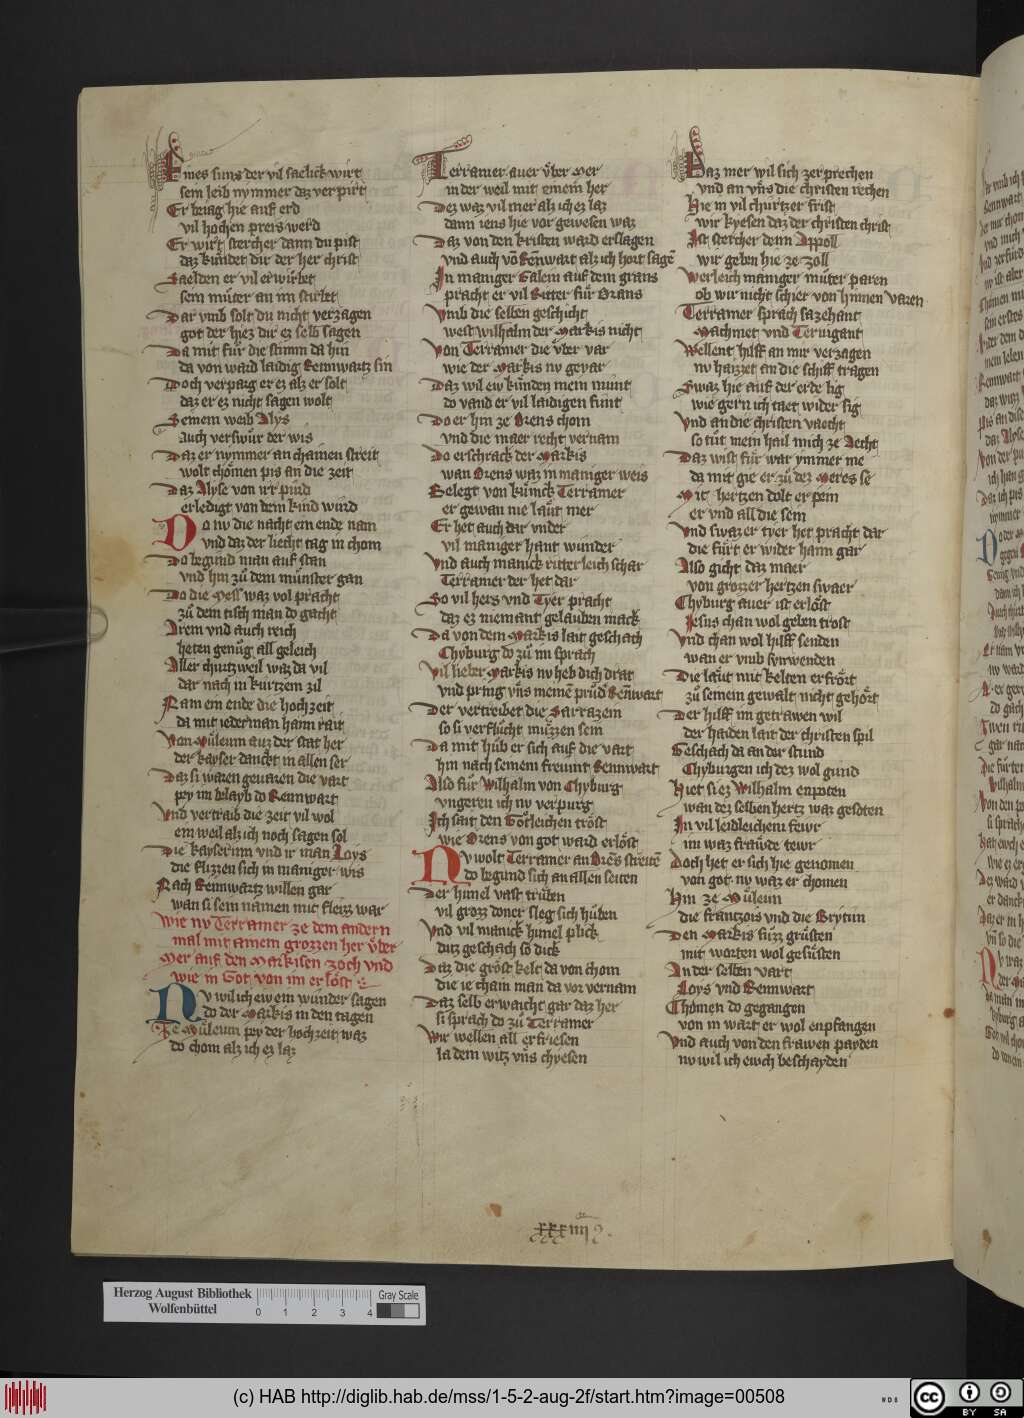 Eines suns der vil saelick wirt
sein leib nymmer daz verpirt
Er beiag hie auf erd
vil hohen preis werd
Er wirt stercher dann du pist
daz kundet dir der her christ
Saelden er vil erwirbet
sein muter an im stirbet
Dar vmb solt du nicht verzagen
got der hiez dir ez selb sagen
Da mit fur die stimm da hin
da von ward laidig Rennwartz sin
Doch verparg er ez alz er solt
daz er ez nicht sagen wolt
Seinem weib Alys
auch verswur der wis
Daz er nymmer an chainen streit
wolt chomen pis an die zeit
Daz Alyse von irr purd
erledigt von dem kind wurd
Do nv die nacht ein ende nam
vnd daz der liecht tag in chom
Do begund man auf stan
vnd hin zu dem munster gan
Do die Mess waz vol pracht
zu dem tisch man do gacht
Arem vnd auch reich
heten genug all geleich
Aller churtzweil waz da vil
dar nach in kurtzem zil
Nam ein ende die hochzeit
da mit iederman hann rait
Von Muleum auz der stat her
der kayser danckt in allen ser
Daz si waren geuaren die vart
pey im belayb do Rennwart
Vnd vertraib die zeit vil wol
ein weil alz ich noch sagen sol
Die kayserinn vnd ir man Loys
die flizzen sich in maniger wis
Nach Rennwartz willen gar
wan si sein namen mit fleizz war
Wie nv Terramer ze dem andern
mal mit ainem grozzen her vber
Mer auf den Markisen zoch vnd
wie in Got von im erlost
Nv wil ich ew ein wunder sagen
do der Markis in den tagen
Ze Muleum pey der hochzeit waz
do chom alz ich ez laz
Terramer auer vber Mer
in der weil mit einem her
Dez waz vil mer alz ich ez laz
dann iens hie vor gewesen waz
Daz von den kristen ward erslagen
vnd auch von Rennwart alz ich hort sagen
In maniger Galein auf dem grans
pracht er vil Ritter fur Orans
Vmb die selben geschicht
west wilhalm der Markis nicht
Von Terramer die vber var
wie der Markis nv gevar
Daz wil ew kunden mein munt
do vand er vil laidigen funt
Do er hin ze Orens chom
vnd die maer recht vernam
Do erschrack der Markis
wan Orens waz in maniger weis
Belegt von kunick Terramer
er gewan nie laut mer
Er het auch dar vnder
vil maniger hant wunder
Vnd auch manick ritterleich schar
Terramer der het dar
So vil hers vnd Tyer pracht
daz ez niemant gelauben mack
Da von dem Markis lait geschach
Chyburg do zu im sprach
Vil lieber Markis nv heb dich drat
vnd pring vns meinen prud Rennwart
Der vertreibet die Sarrazein
so si verflucht muzzen sein
Da mit hub er sich auf die vart
hin nach seinem freunt Rennwart
Also fur Wilhalm von Chyburg
vngeren ich nv verpurg
Ich sait den Gotleichen trost
wie Orens von got ward erlost
Nv wolt Terramer an Orens streiten
do begund sich an allen seiten
Der himel vast truben
vil grozz doner sleg sich huben
Vnd vil manick himel plick
ditz geschach so dick
Daz die grost kelt da von chom
die ie chain man da vor vernam
Daz selb erwaicht gar daz her
si sprach do zu Terramer
Wir wellen all erfriesen
la dem witz vns chyesen
Daz mer wil sich zerprechen
vnd an vns die christen rechen
Hie in vil churtzer frist
wir kyesen daz der christen christ
Ist stercher denn Appoll
wir geben hie ze zoll
Werleich maniger muter paren
ob wir nicht schier von hinnen varen
Terramer sprach sazehant
Machmet vnd Teruigant
Wellent hilff an mir verzagen
nv haizzet an die schiff tragen
Swaz hie auf der erde lig
wie gern ich taet wider sig
Vnd an die christen vaecht
so tut mein hail mich ze Aecht
Daz wist fur war ymmer me
da mit gie er zu dez Meres se
Mit hertzen dolt er pein
er vnd all die sein
Vnd swaz er tyer het pracht dar
die furt er wider hann gar
Also gicht daz maer
von grozzer hertzen swaer
Chyburg auer ist erlost
Jesus chan wol geben trost
Vnd chan wol hilff senden
wan er vmb synwenden
Die laut mit kelten erfrort
zu seinem gewalt nicht gehort
Der hilff im getrawen wil
der haiden lait der christen spil
Geschach da an der stund
Chyburgen ich dez wol gund
Hiet si ez Wilhalm enpoten
wan dez selben hertz waz gesoten
In vil leidleichem fewr
im waz fraude tewr
Doch het er sich hie genomen
von got nv waz er chomen
Hin ze Muleum
die frantzois vnd die Brytun
Den Markis suzz grusten
mit worten wol gesusten
An der selben vart
Loys vnd Rennwart
Chomen do gegangen
von in wart er wol enpfangen
Vnd auch von den frawen payden
nv wil ich ewch beschayden
xxxiiii
Herzog August Bibliothek
Wolfenbüttel
0 1 2 3 4
Gray Scale
(c) HAB http://diglib.hab.de/mss/1-5-2-aug-2f/start.htm?image=00508
WDB
cc BY SA